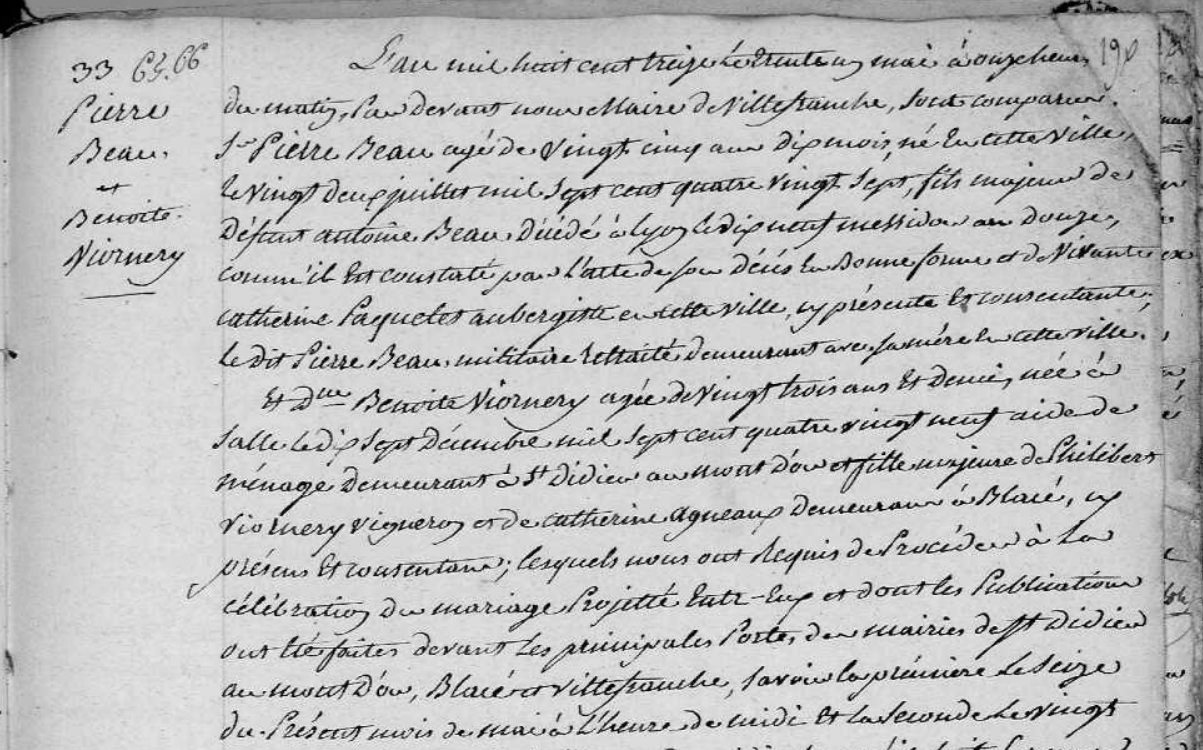 33 65.66
Pierre
Beau.
et
Benoite
Viornery
L'an mil huit cent treize le trente un mai à onze heures 190
du matin, Par devant nous Maire de Villefranche, sont comparus.
Sr Pierre Beau agé de vingt cinq ans dix mois, né En cette ville,
le vingt deux juillet mil sept cent quatre vingt sept, fils majeur de
Défunt antoine Beau, Décédé à Lyon le dix neuf messidor an douze,
comm'il Est constaté par l'acte de son décès En Bonne forme et de Vivante
catherine Paquelet aubergiste en cette ville, cy présente Et consentante;
le dit Pierre Beau, militaire retraité demeurant avec sa mère En cette ville.
Et Dlle Benoite Viornery agée de vingt trois ans Et Demi, née à
Salle le dix sept Décembre mil sept cent quatre vingt neuf aide de
ménage demeurant à St Didier au mont D'or et fille majeure de Philibert
Viornery vigneron et de catherine agneaux demeurans à Blacé, cy
présens Et consentans; lesquels nous ont Requis de Procéder à La
célébration du mariage Projetté Entr-Eux et dont les Publications
ont été faites devant Les principales Portes des mairies de St Didier
au mont D'or, Blacé et Villefranche, savoir la première le Seize
du Présent mois de mai à L'heure de midi Et la seconde Le vingt